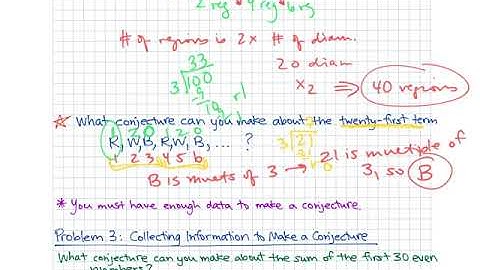 2 reg 4 reg 6 rg
# of regions is 2x # of diam.
20 diam
x2 ⟹ 40 regions
33
3)100
9
10
r1
☆ What conjecture can you make about the twenty-first term
1 2 0 1 2 0
R, W, B, R, W, B, ... ?
1 2 3 4 5 6
7
3)21
21
r0
21 is multiple of
3, so B
B is mults of 3 →
* You must have enough data to make a conjecture.
Problem 3: Collecting Information to Make a Conjecture
What conjecture can you make about the sum of the first 30 even
numbers?